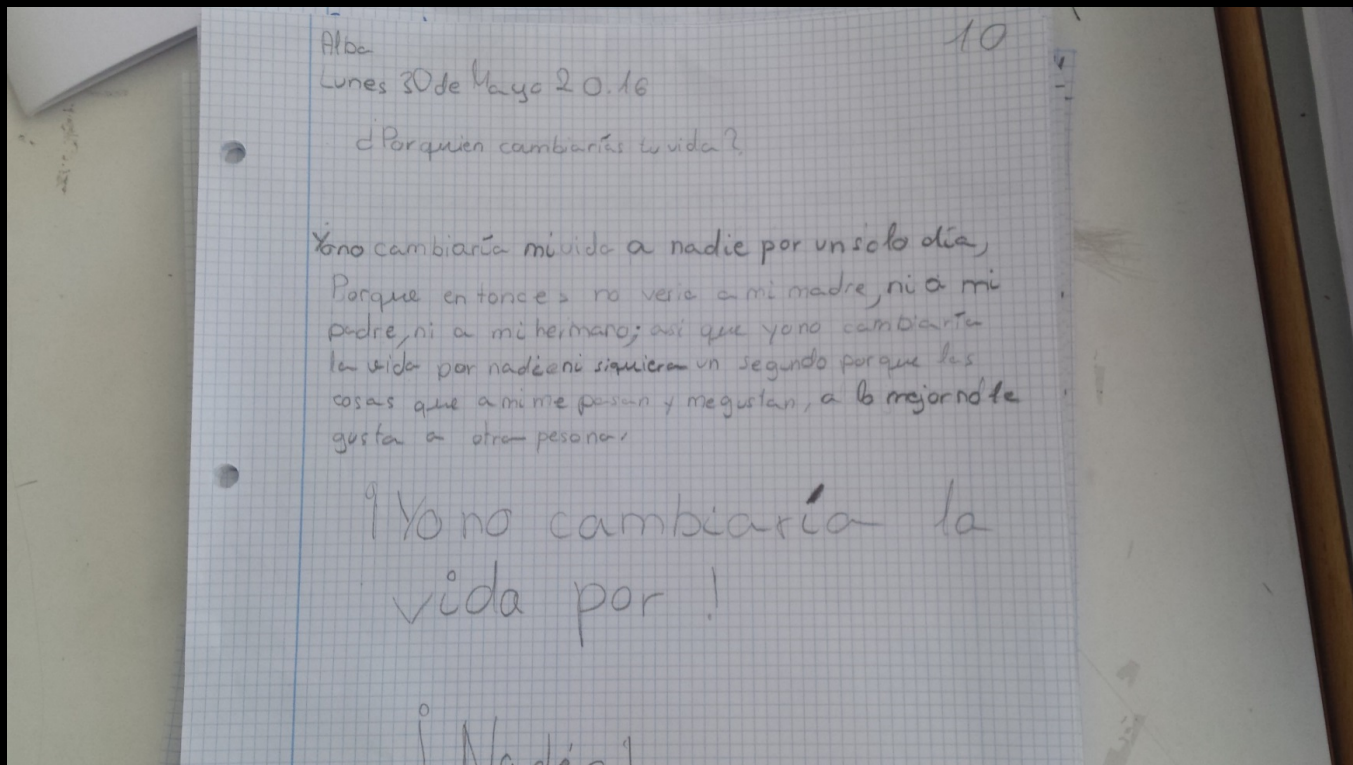 Alba
10
Lunes 30 de Mayo 20.16
¿Por quien cambiarías tu vida?
Yo no cambiaría mi vida a nadie por un solo día,
Porque entonces no vería a mi madre, ni a mi
padre, ni a mi hermano; asi que yo no cambiaría
la vida por nadie ni siquiera un segundo porque las
cosas que a mi me pasan y me gustan, a lo mejor no le
gusta a otra pesona.
¡Yo no cambiaría la
vida por!
¡Nadie!